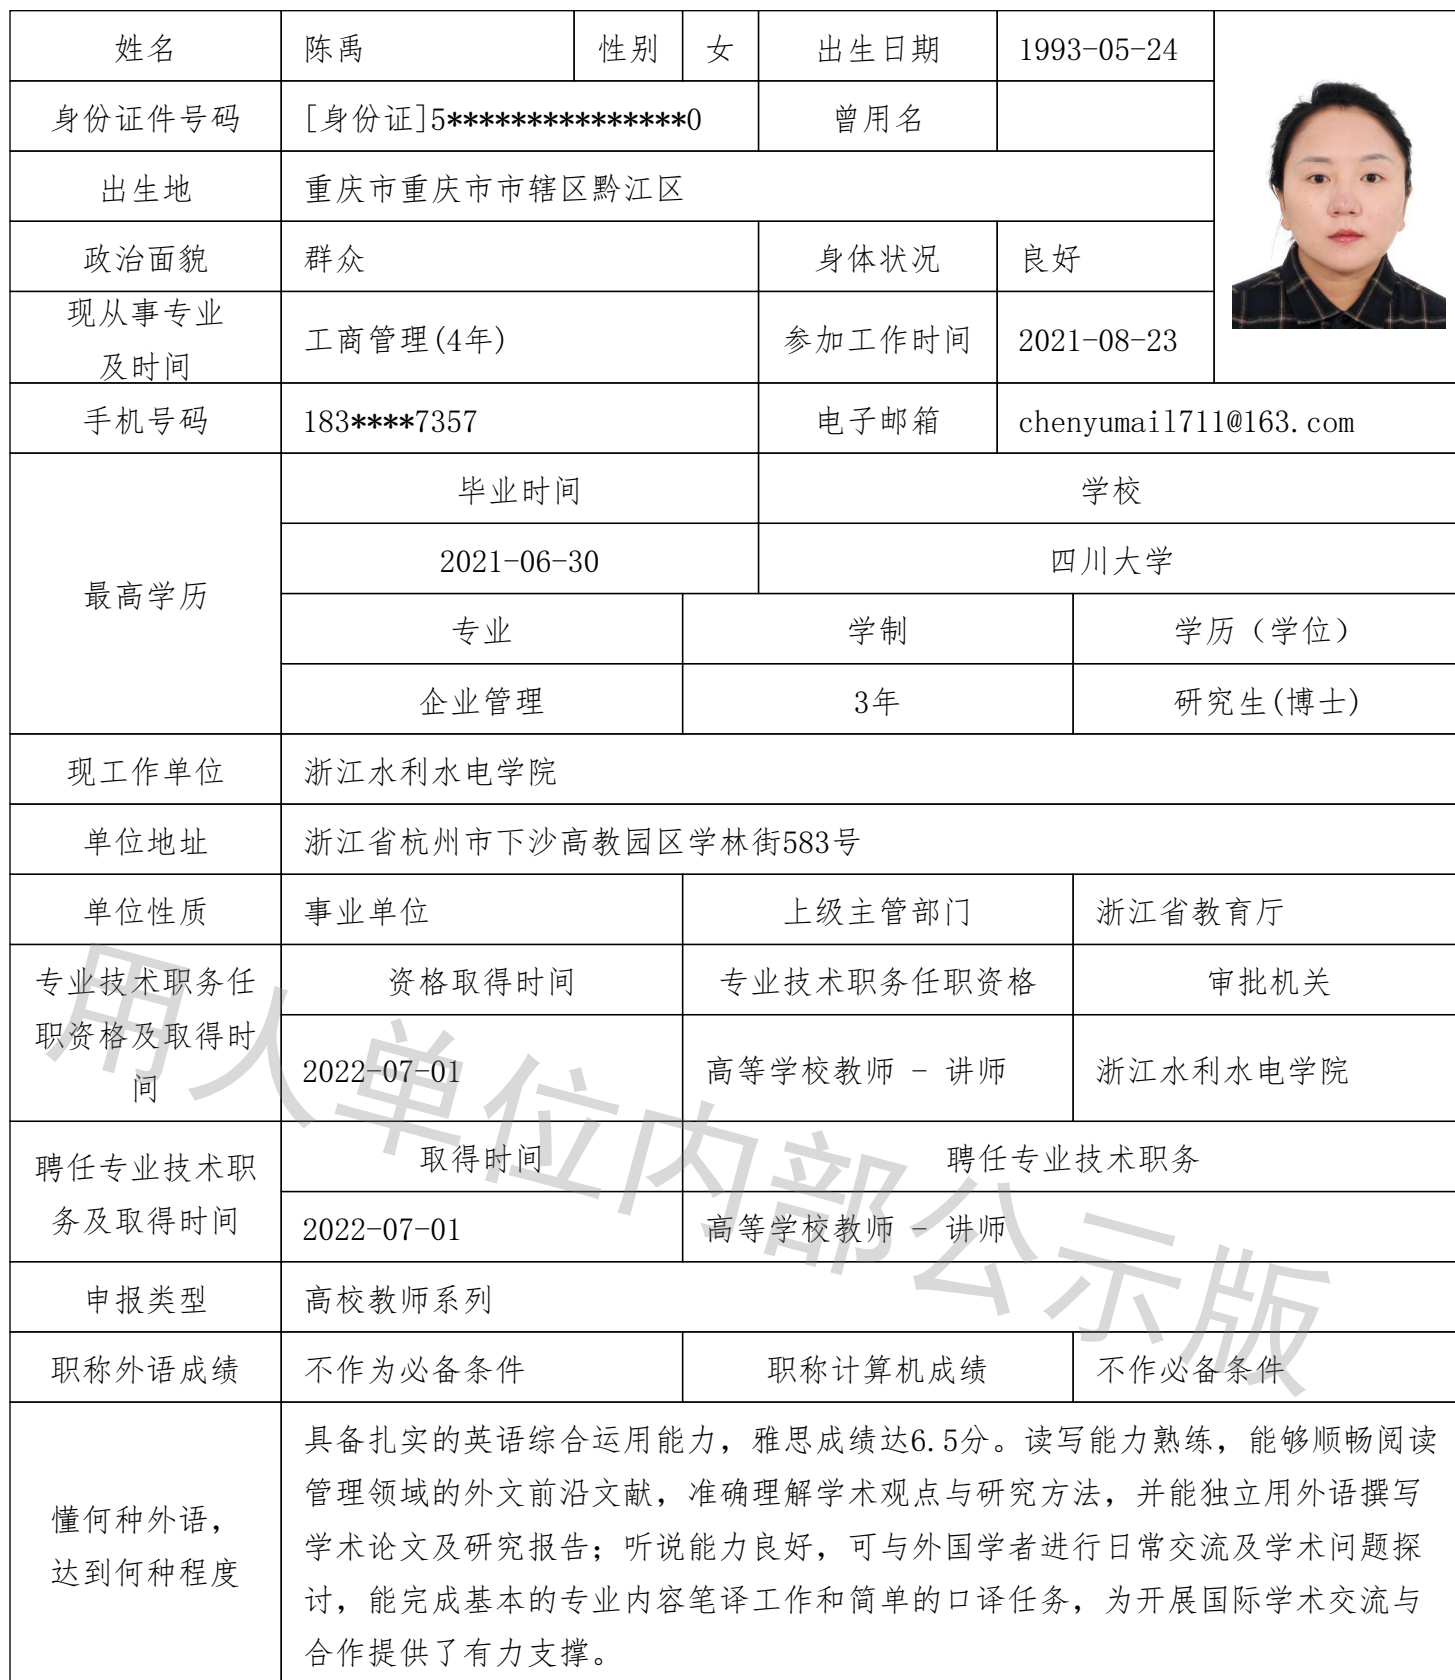 姓名 陈禹 性别 女 出生日期 1993-05-24
身份证件号码 [身份证]5***************0 曾用名
出生地 重庆市重庆市市辖区黔江区
政治面貌 群众 身体状况 良好
现从事专业
及时间 工商管理(4年) 参加工作时间 2021-08-23
手机号码 183****7357 电子邮箱 chenyumail711@163.com
最高学历 毕业时间 学校
2021-06-30 四川大学
专业 学制 学历（学位）
企业管理 3年 研究生(博士)
现工作单位 浙江水利水电学院
单位地址 浙江省杭州市下沙高教园区学林街583号
单位性质 事业单位 上级主管部门 浙江省教育厅
专业技术职务任
职资格及取得时
间 资格取得时间 专业技术职务任职资格 审批机关
2022-07-01 高等学校教师 - 讲师 浙江水利水电学院
聘任专业技术职
务及取得时间 取得时间 聘任专业技术职务
2022-07-01 高等学校教师 - 讲师
申报类型 高校教师系列
职称外语成绩 不作为必备条件 职称计算机成绩 不作必备条件
懂何种外语，
达到何种程度
具备扎实的英语综合运用能力，雅思成绩达6.5分。读写能力熟练，能够顺畅阅读
管理领域的外文前沿文献，准确理解学术观点与研究方法，并能独立用外语撰写
学术论文及研究报告；听说能力良好，可与外国学者进行日常交流及学术问题探
讨，能完成基本的专业内容笔译工作和简单的口译任务，为开展国际学术交流与
合作提供了有力支撑。
用人单位内部公示版